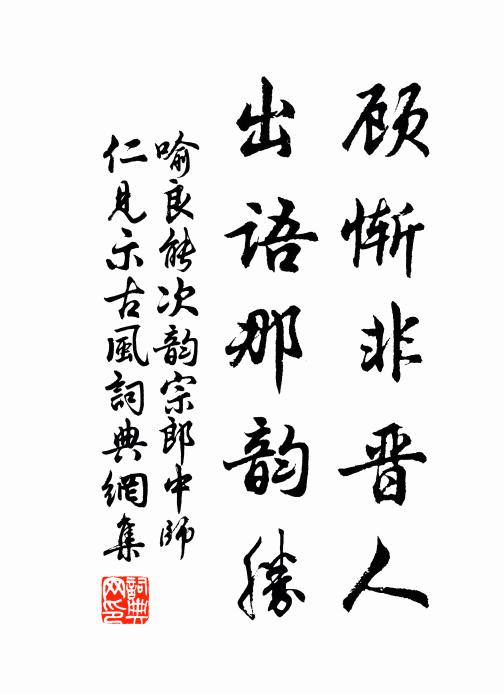 顾惭非晋人
出语那韵胜
喻良能次韵宗郎中师
仁见示古風詞典網集
詞典網印